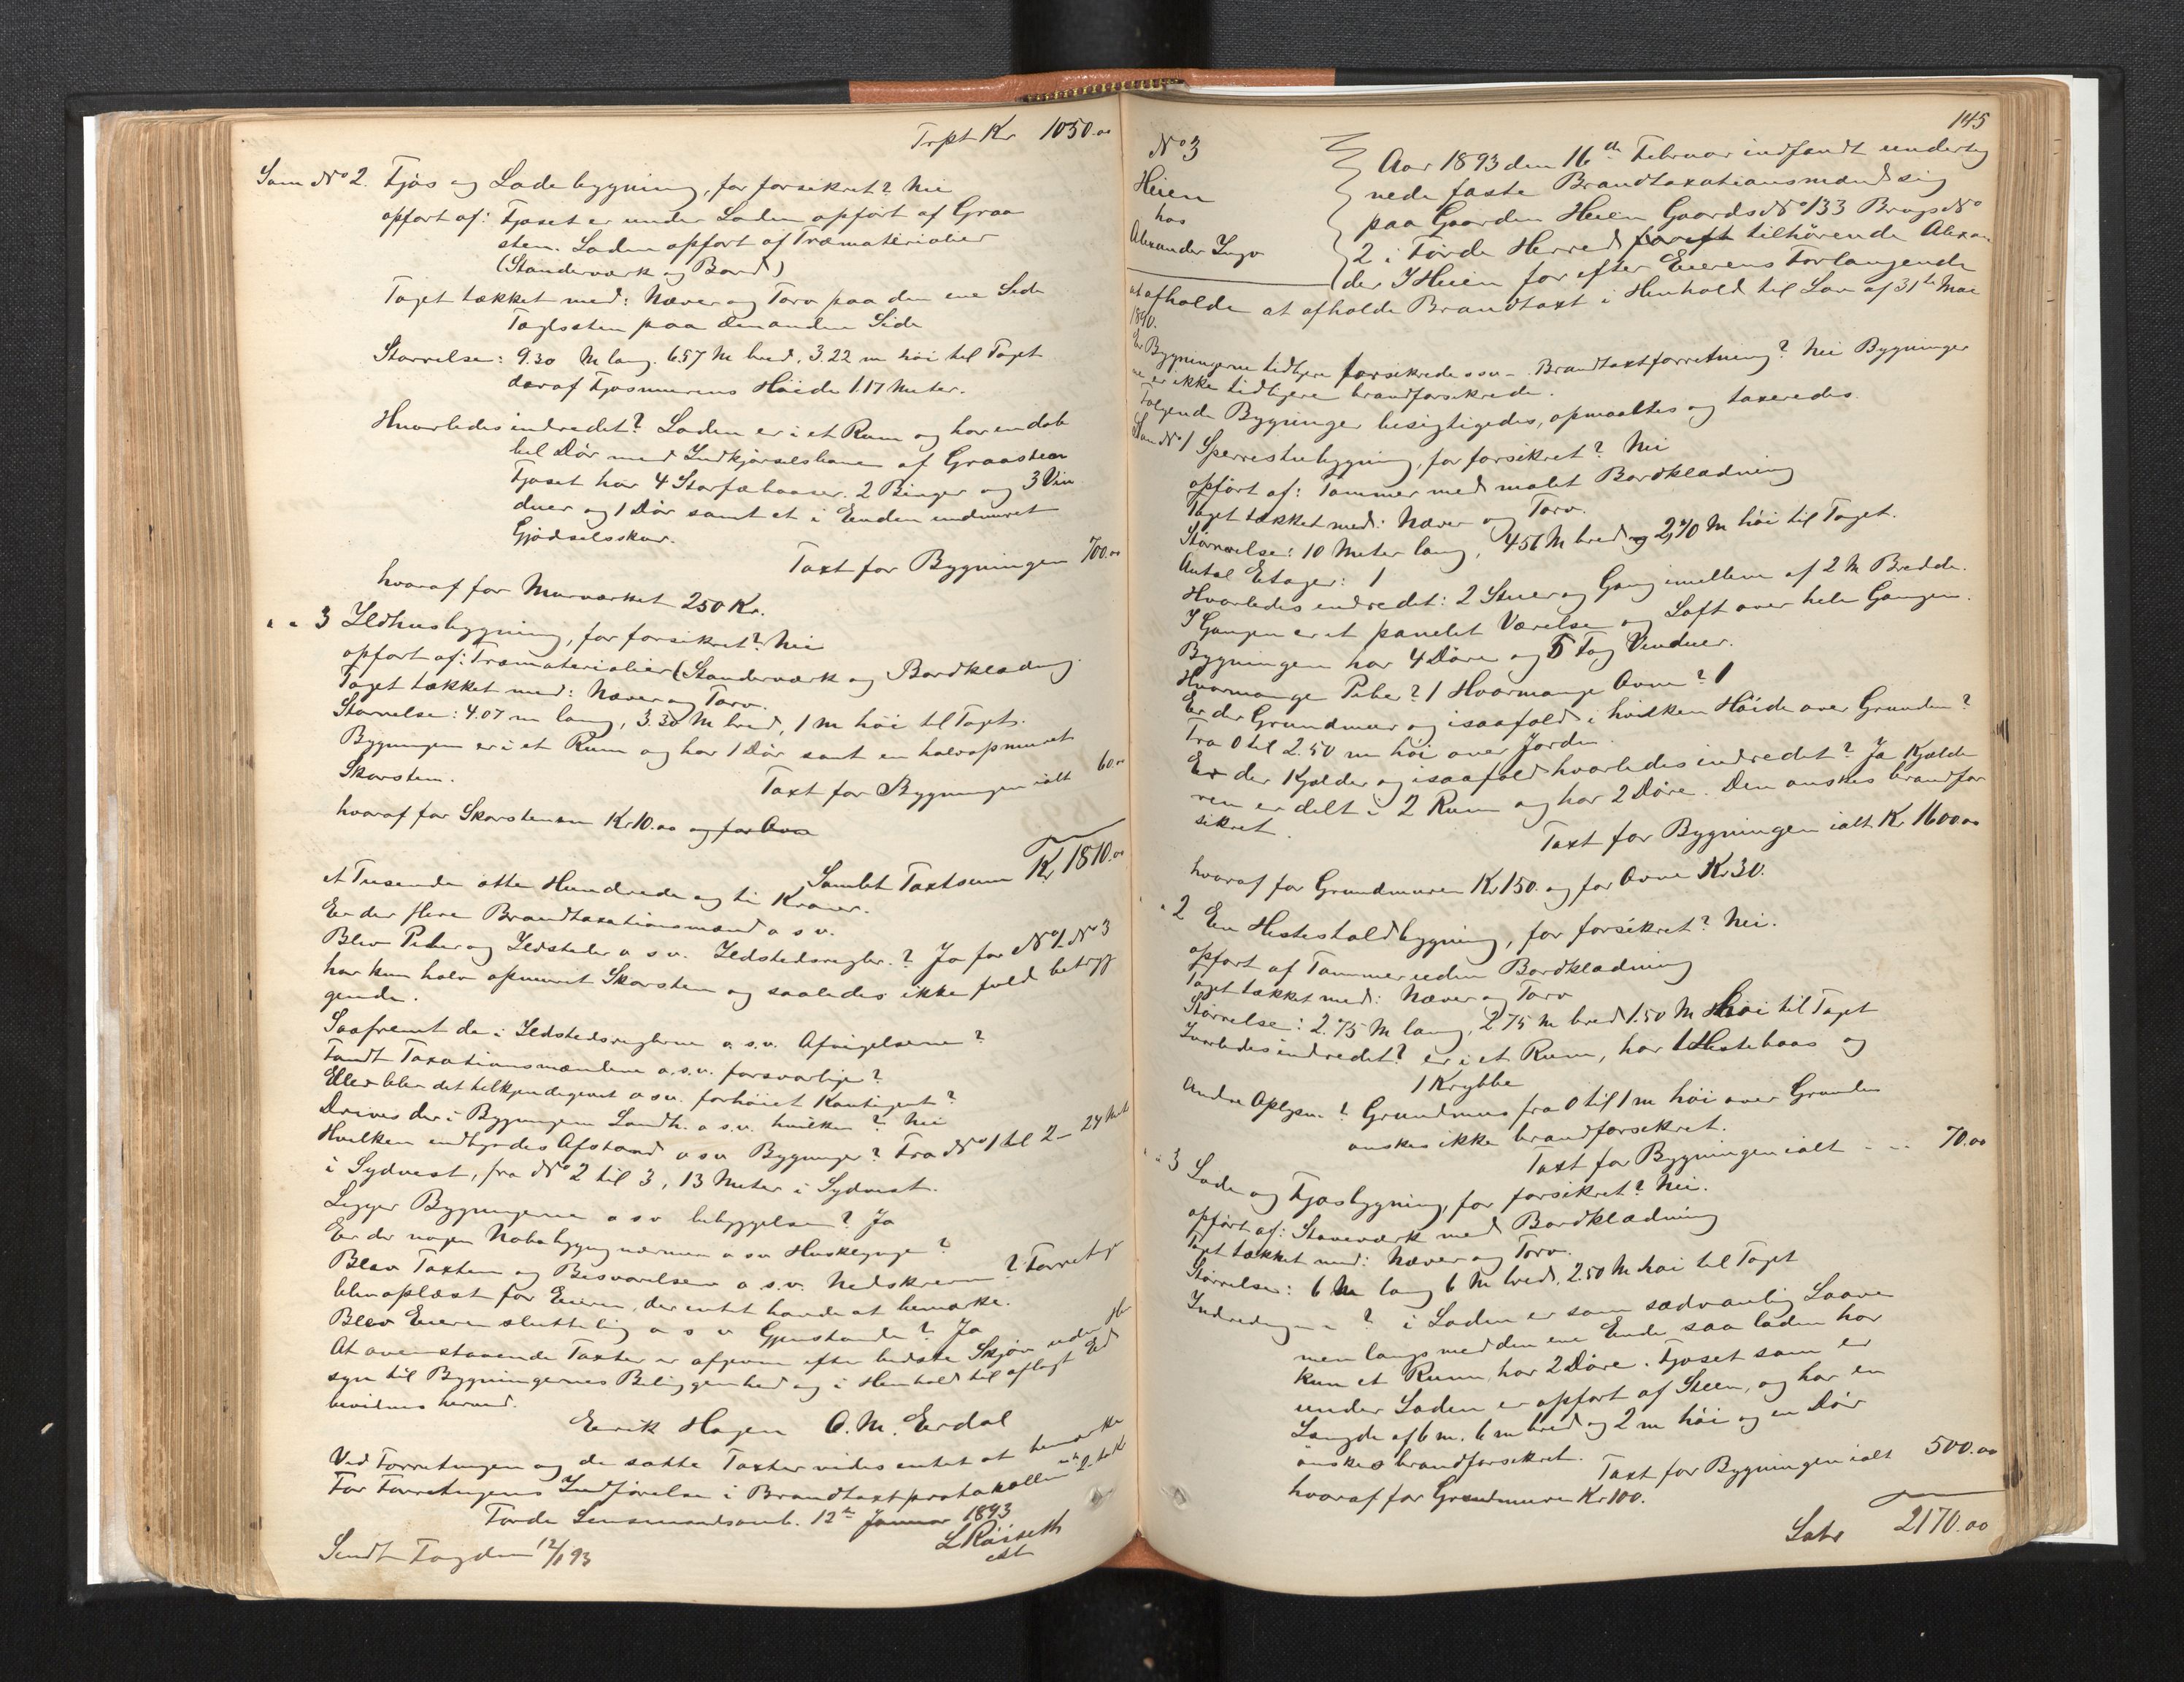 Trpt Kr 1050.00
Som No 2. Fjøs og Ladebygning, før forsikret? Nei
opført af: Fjøset er under Laden opført af Graa
sten. Laden opført af Træmaterialier
(Standerværk og Bord)
Taget tækket med: Næver og Torv paa den ene Side
Taglsten paa den anden Side
Størrelse: 9.30 M lang. 6.57 M bred, 3.22 m høi til Taget
deraf Fjøsmurens Høide 1.17 Meter.
Hvorledes indredet? Laden er i et Rum og har en dob
bel Dør med Indkjørselsbane af Graasten
Fjøset har 4 Storfæbaaser. 2 Binger og 3 Vin
duer og 1 Dør samt et i Enden indmuret
Gjødselsskur.
Taxt for Bygningen 700.00
hvoraf for Murværket 250 Kr.
" " 3 Ildhusbygning, før forsikret? Nei
opført af: Træmaterialier (Standerværk og Bordklædng.
Taget tækket med: Næver og Torv.
Størrelse: 4.07 m lang, 3.30 M bred, 1 M høi til Taget.
Bygningen er i et Rum og har 1 Dør samt en halvopmuret
Skorsten.
Taxt for Bygningen ialt 60.00
hvoraf for Skorstenen Kr 10.00 og for Ovn
Samlet Taxtsum Kr 1810.00
et Tusende otte Hundrede og ti Kroner.
Er der flere Brandtaxationsmænd o s v.
Blev Piber og Ildsteder o s v. Ildstedsregler.? Ja for No 1. No 3
har kun halv opmuret Skorsten og saaledes ikke fuld betryg
gende.
Saafremt de i Ildstedsreglerne o. s. v. Afvigelserne?
Fandt Taxationsmændene o. s. v. forsvarlige?
Eller blev det tilkjendegivet o s v. forhøiet Kontigent?
Drives der i Bygningen Landh. o s. v. hvilken? Nei
Hvilken indbyrdes Afstand o s v Bygninger? Fra No 1 til 2 - 24 Met
i Sydvest, fra No 2 til 3, 13 Meter i Sydvest.
Ligger Bygningerne o s v bebyggelsen? Ja
Er der nogen Nabobygng nærmere o s v Husklynge?
Blev Taxten og Besvarelsen o. s. v. Nedskreven? Forretngn
blev oplæst for Eieren, der intet havde at bemærke.
Blev Eieren sluttelig o s v Gjenstande? Ja
At ovenstaaende Taxter er afgivne efter bedste Skjøn uden Hen
syn til Bygningernes Beliggenhed og i Henhold til aflagt Ed
bevidnes herved.
Eirik Hagen O. M. Erdal
Ved Forretningen og de satte Taxter vides intet at bemærke
For Forretngens Indførelse i Brandtaxtprotokollen
Førde Lensmandsomb. 12te Januar 1893
L Røiseth
Sendt Fogden 12/1 93
145
No 3
Heien
hos
Alexander Ingv
Aar 1893 den 16de Februar indfandt underteg
nede faste Brandtaxationsmænd sig
paa Gaarden Heien Gaards No 133 Brugs No
2 i Førde Herred tilhørende Alexan
der I Heien for efter Eierens Forlangende
at afholde at afholde Brandtaxt i Henhold til Lov af 31te Mai
1890.
Er Bygningerne tidligere forsikrede o s v - Brandtaxtforretning? Nei Bygninger
ne er ikke tidligere brandforsikrede.
Følgende Bygninger besigtigedes, opmaaltes og taxeredes.
Som No 1 Sperrestuebygning, før forsikret? Nei
opført af: Tømmer med malet Bordklædning
Taget tækket med: Næver og Torv.
Størrelse: 10 Meter lang, 4.56 M bred og 2,40 M høi til Taget.
Antal Etager: 1
Hvorledes indredet: 2 Stuer og Gang imellem af 2 M Bredde.
I Gangen er et panelet Værelse og Loft over hele Gangen.
Bygningen har 4 Døre og 5 Fag Vinduer.
Hvormange Piber? 1 Hvormange Ovne? 1
Er der Grundmur og isaafald i hvilken Høide over Grunden?
Fra 0 til 2.50 m høi over Jorden.
Er der Kjælder og isaafald hvorledes indredet? Ja Kjælde
ren er delt i 2 Rum og har 2 Døre. Den ønskes brandfor
sikret.
Taxt for Bygningen ialt Kr 1600.00
hvoraf for Grundmuren Kr 150. og for Ovne Kr 30.
" 2 En Hestestaldbygning, før forsikret? Nei.
opført af Tømmer uden Bordklædning
Taget tækket med: Næver og Torv
Størrelse: 2.75 M lang, 2.75 M bred 1.50 M Høi til Taget
Hvorledes indredet? er i et Rum, har 1 Hestebaas og
1 Krybbe
Andre Oplysn.? Grundmur fra 0 til 1 m høi over Grunden
ønskes ikke brandforsikret.
Taxt for Bygningen ialt - - 70.00
" " 3 Lade og Fjøsbygning, før forsikret? Nei.
opført af: Staveværk med Bordklædning
Taget tækket med: Næver og Torv.
Størrelse: 6 M lang 6 M bred, 2.50 M høi til Taget
Indredngn -? i Laden er som sædvanlig Laave
men langs med den ene Ende saa laden har
kun et Rum, har 2 Døre. Fjøset som er
under Laden er opført af Steen, og har en
Længde af 6 m. 6 m bred og 2 m høi og en Dør
ønskes brandforsikret.
Taxt for Bygningen ialt 500.00
hvoraf for Grundmuren Kr 100.
Lats 2170.00